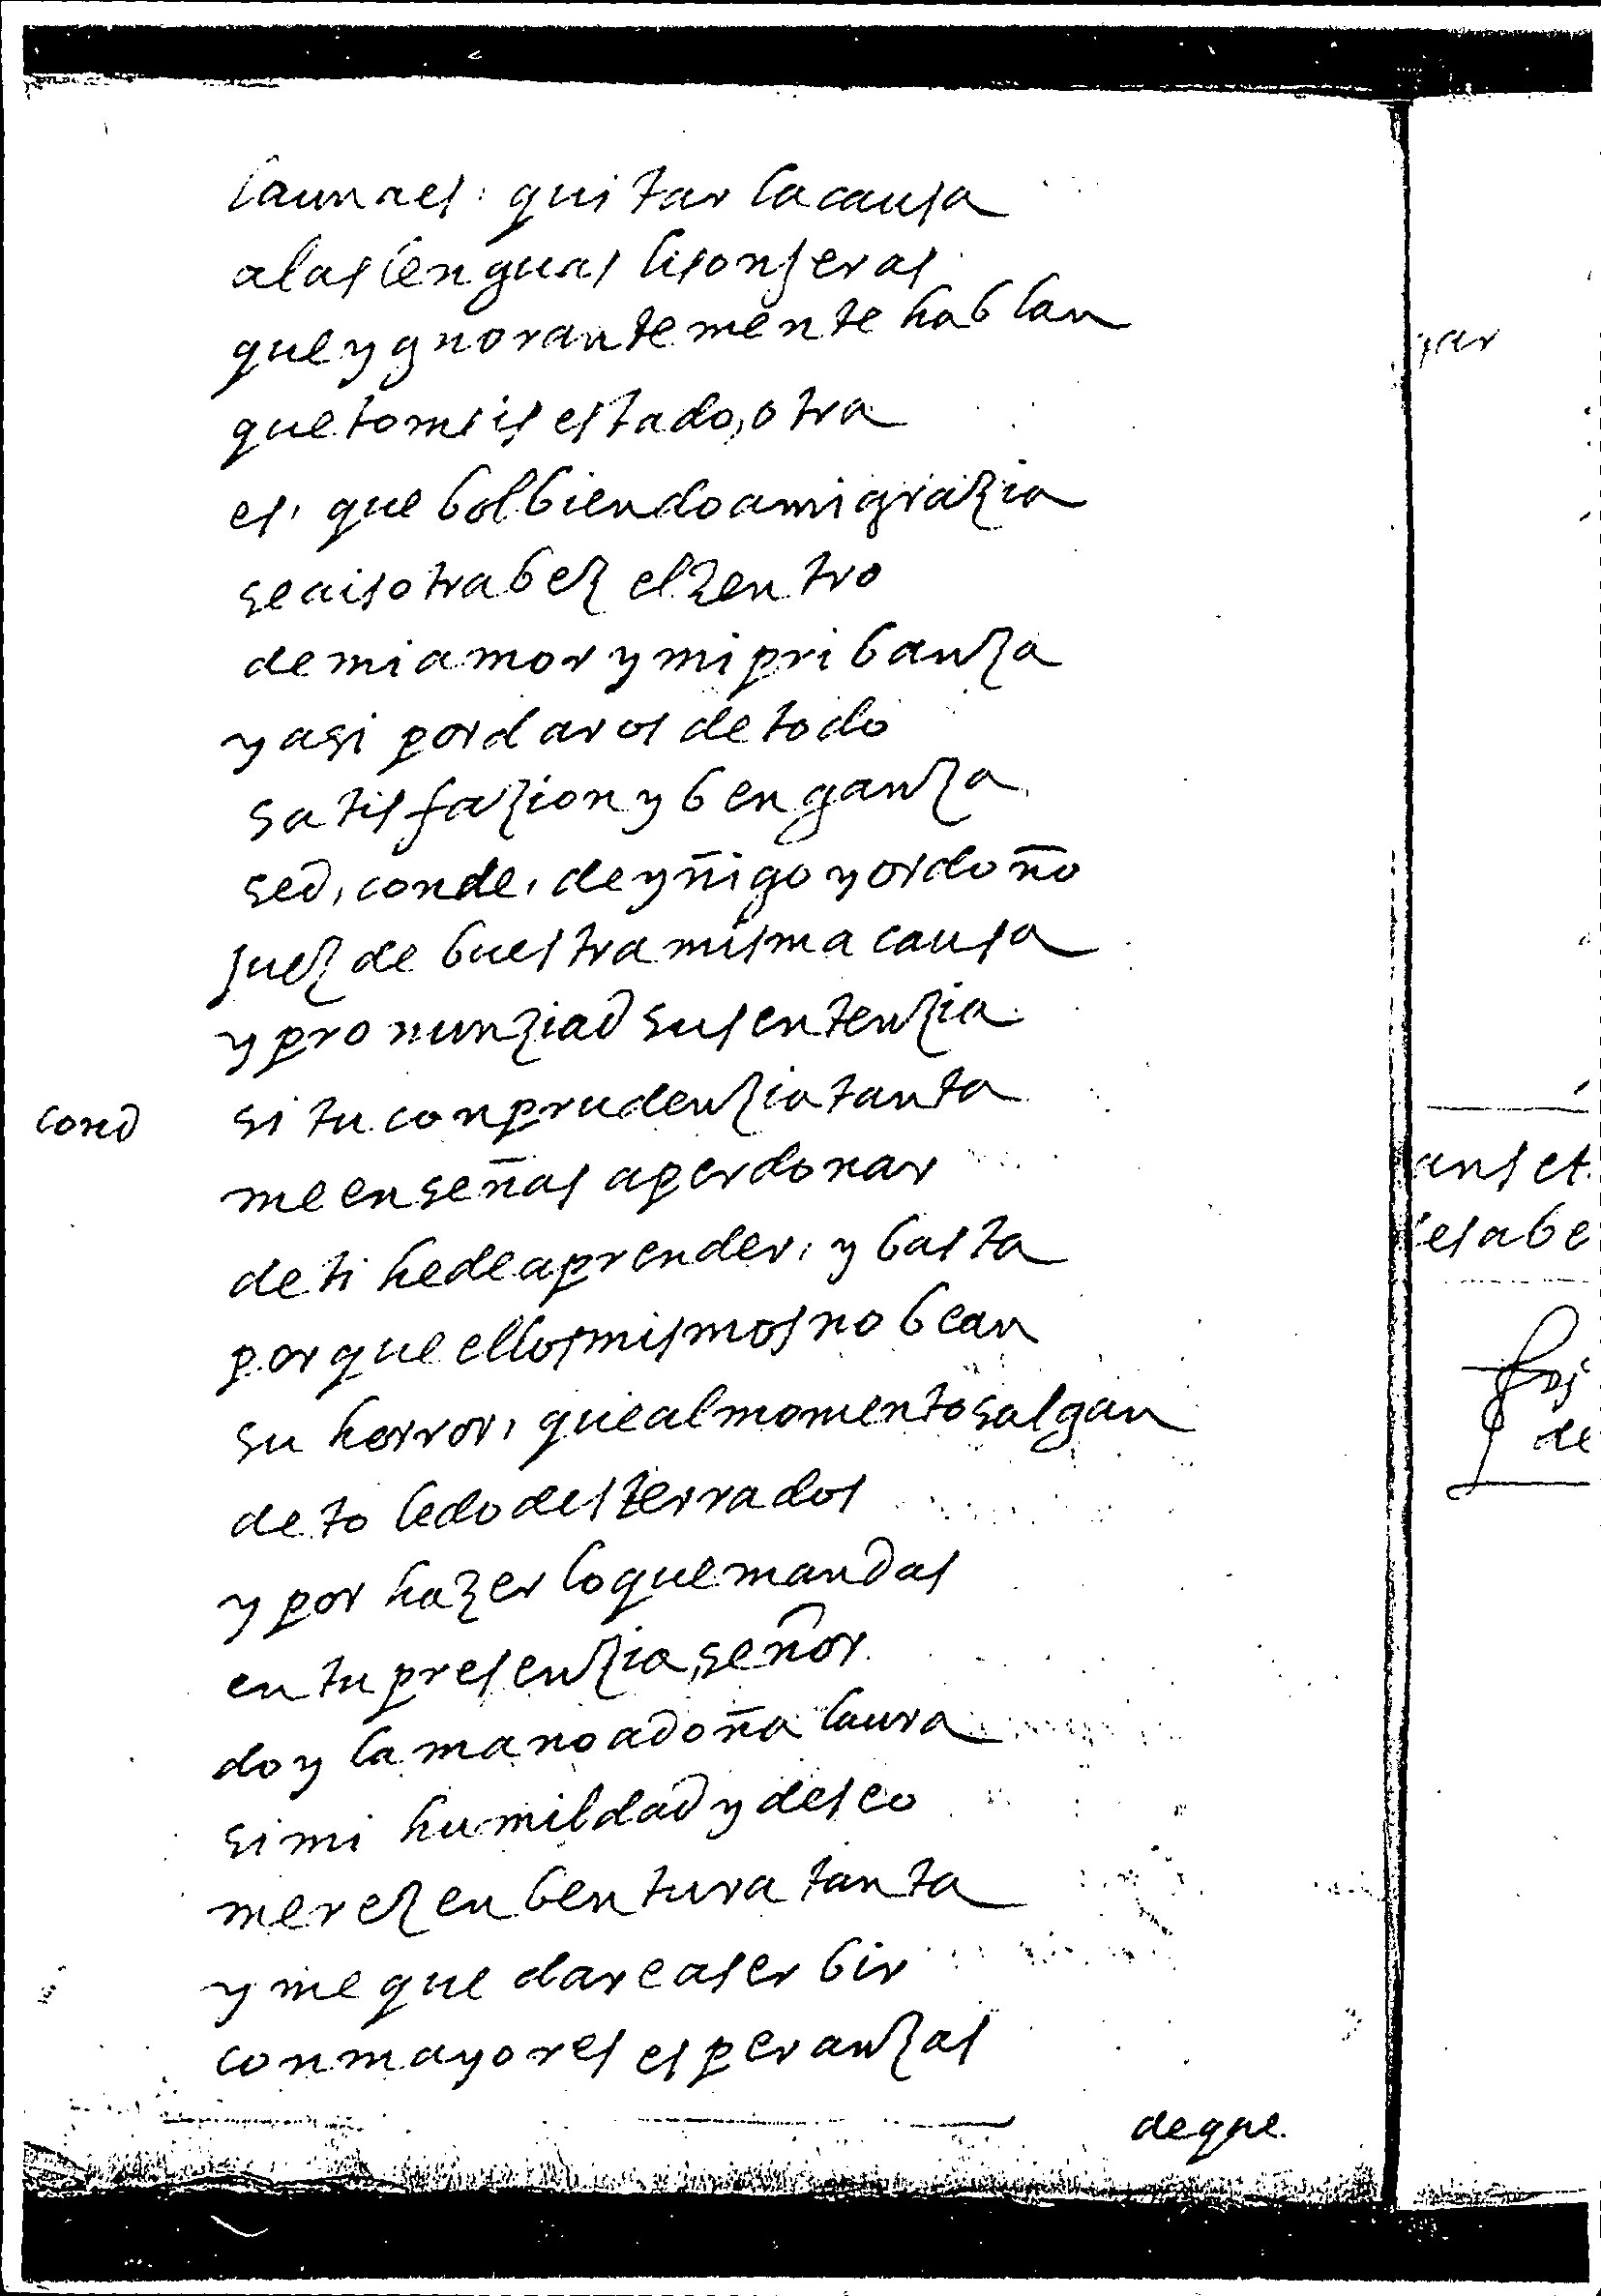 la una es: quitar la causa
a las lenguas lisonjeras
que ygnorantemente hablan
que tomeis estado, otra
es, que bolbiendo a mi grazia
seais otra bez el zentro
de mi amor y mi pribanza
y asi por daros de todo
satisfazion y benganza
sed, conde, de yñigo y ordoño
juez de buestra misma causa
y pronunziad su sentenzia
cond si tu con prudenzia tanta
me enseñas a perdonar
de ti he de aprender, y basta
porque ellos mismos no bean
su horror, que al momento salgan
de toledo desterrados
y por hazer lo que mandas
en tu presenzia, señor
doy la mano a doña laura
si mi humildad y deseo
merezen bentura tanta
y me quedare a serbir
con mayores esperanzas
de que